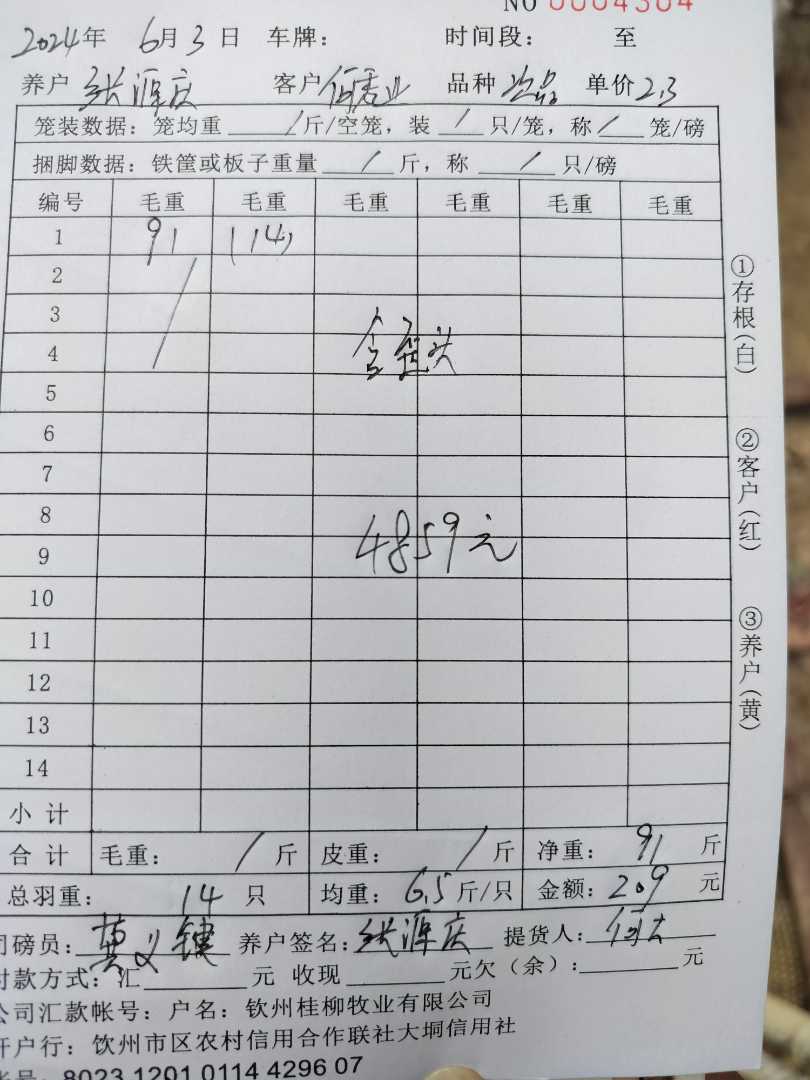 NO 0004304
2024年 6月3日 车牌： 时间段： 至
养户 张源庆 客户 品种 次品 单价2.3
笼装数据：笼均重 / 斤/空笼，装 / 只/笼，称 / 笼/磅
捆脚数据：铁筐或板子重量 / 斤，称 / 只/磅
编号 毛重 毛重 毛重 毛重 毛重 毛重
1 91 (14)
2
3
4
5
6
7
8
9
10
11
12
13
14
4859元
小计
合计 毛重： / 斤 皮重： / 斤 净重： 91 斤
总羽重： 14 只 均重： 6.5 斤/只 金额： 209 元
司磅员： 莫义键 养户签名： 张源庆 提货人：
付款方式：汇 元 收现 元欠（余）： 元
公司汇款帐号：户名：钦州桂柳牧业有限公司
开户行：饮州市区农村信用合作联社大垌信用社
帐号：8023 1201 0114 4296 07
①存根（白）
②客户（红）
③养户（黄）